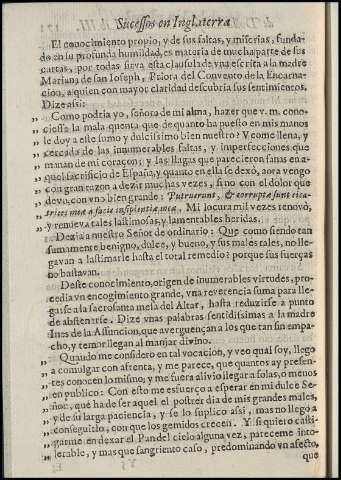 Sucessos en Inglaterra
El conocimiento propio, y de sus faltas, y miserias, funda-
do en su profunda humildad, es materia de mucha parte de sus
cartas, por todas sirva esta clausula de vna escrita a la madre
Mariana de san Ioseph, Priora del Convento de la Encarna-
cion, a quien con mayor claridad descubria sus sentimientos.
Dize assi:
„ Como podria yo, señora de mi alma, hazer que v. m. cono-
„ ciesse la mala quenta que de quanto ha puesto en mis manos
„ le doy a este sumo y dulcissimo bien nuestro? Vcome llena, y
„ cercada de las inumerables faltas, y imperfecciones que
„ manan de mi coraçon; y las llagas que parecieron sanas en a-
„ quel sacrificio de España, y quanto en ella se dexò, aora vengo
„ con gran razon a dezir muchas vezes, si no con el dolor que
„ devo, con vno bien grande: Putruerunt, & corrupta sunt cica-
„ trices meæ a facie insipientiæ meæ. Mi locura mil vezes renovò,
„ y renueva tales lastimosas, y lamentables heridas.
Dezia a nuestro Señor de ordinario: Que como siendo tan
sumamente benigno, dulce, y bueno, y sus males tales, no lle-
gavan a lastimarle hasta el total remedio? porque sus fuerças
no bastavan.
Deste conocimiento, origen de inumerables virtudes, pro-
cedia vn encogimiento grande, vna reverencia suma para lle-
garse a la sacrosanta mesa del Altar, hasta reduzirse a punto
de abstenerse. Dize vnas palabras sentidissimas a la madre
Ines de la Assuncion, que averguençan a los que tan sin empa-
cho, y temor llegan al manjar divino.
„ Quando me considero en tal vocacion, y veo qual soy, llego
„ a comulgar con afrenta, y me parece, que quantos ay presen-
„ tes conocen lo mismo; y me fuera alivio llegar a solas, o menos
„ en publico: Con esto me esfuerço a esperar en mi dulce Se-
„ ñor, què ha de ser aquel el postrer dia de mis grandes males,
„ y de su larga paciencia, y se lo suplico assi, mas no llego a
„ conseguirlo, con que los gemidos crecen. Y si quiero casti-
„ garme en dexar el Pan del cielo alguna vez, pareceme into-
„ lerable, y mas que sangriento caso, predominando vn afecto,
que